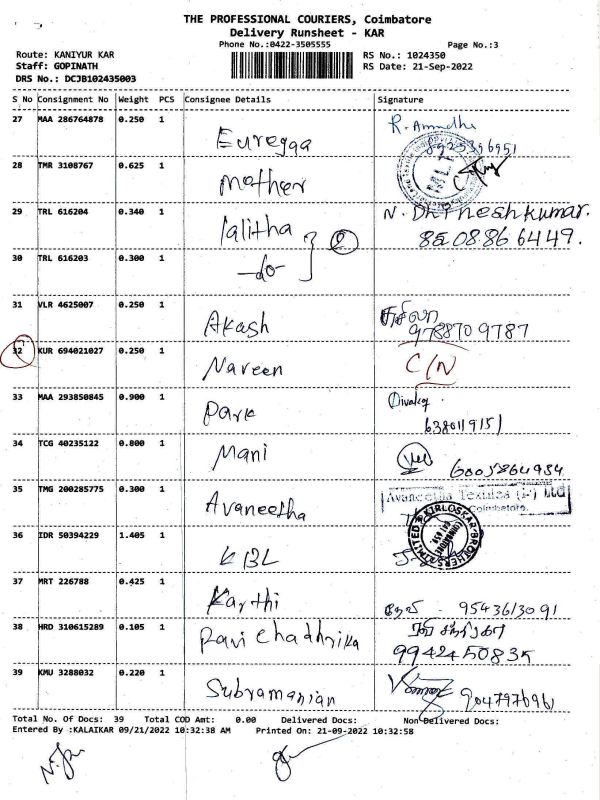 THE PROFESSIONAL COURIERS, Coimbatore
Delivery Runsheet - KAR
Phone No.:0422-3505555 Page No.:3
Route: KANIYUR KAR RS No.: 1024350
Staff: GOPINATH RS Date: 21-Sep-2022
DRS No.: DCJB102435003
S No Consignment No Weight PCS Consignee Details Signature
27 MAA 286764878 0.250 1 Eureqqa R. Amudha
8925396951
28 TMR 3108767 0.625 1 Mother
29 TRL 616204 0.340 1 lalitha N. Dhineshkumar.
8508866449.
30 TRL 616203 0.300 1 -do- } 2
31 VLR 4625007 0.250 1 Akash சுசிலா
9788709787
32 KUR 694021027 0.250 1 Naveen C/N
33 MAA 293850845 0.900 1 Park Divakar
6380119151
34 TCG 40235122 0.800 1 Mani 6005864984
35 TMG 200285775 0.300 1 Avaneetha Avaneetha Textiles (P) Ltd
Coimbatore.
36 IDR 50394229 1.405 1 KBL KIRLOSKAR BROTHERS LIMITED
37 MRT 226788 0.425 1 Karthi தேவி - 9543613091
38 HRD 310615289 0.105 1 Ravi Chadhrika ரவி சந்ரிகா
9942450835
39 KMU 3288032 0.220 1 Subramanian 9047976961
Total No. Of Docs: 39 Total COD Amt: 0.00 Delivered Docs: Non Delivered Docs:
Entered By :KALAIKAR 09/21/2022 10:32:38 AM Printed On: 21-09-2022 10:32:58